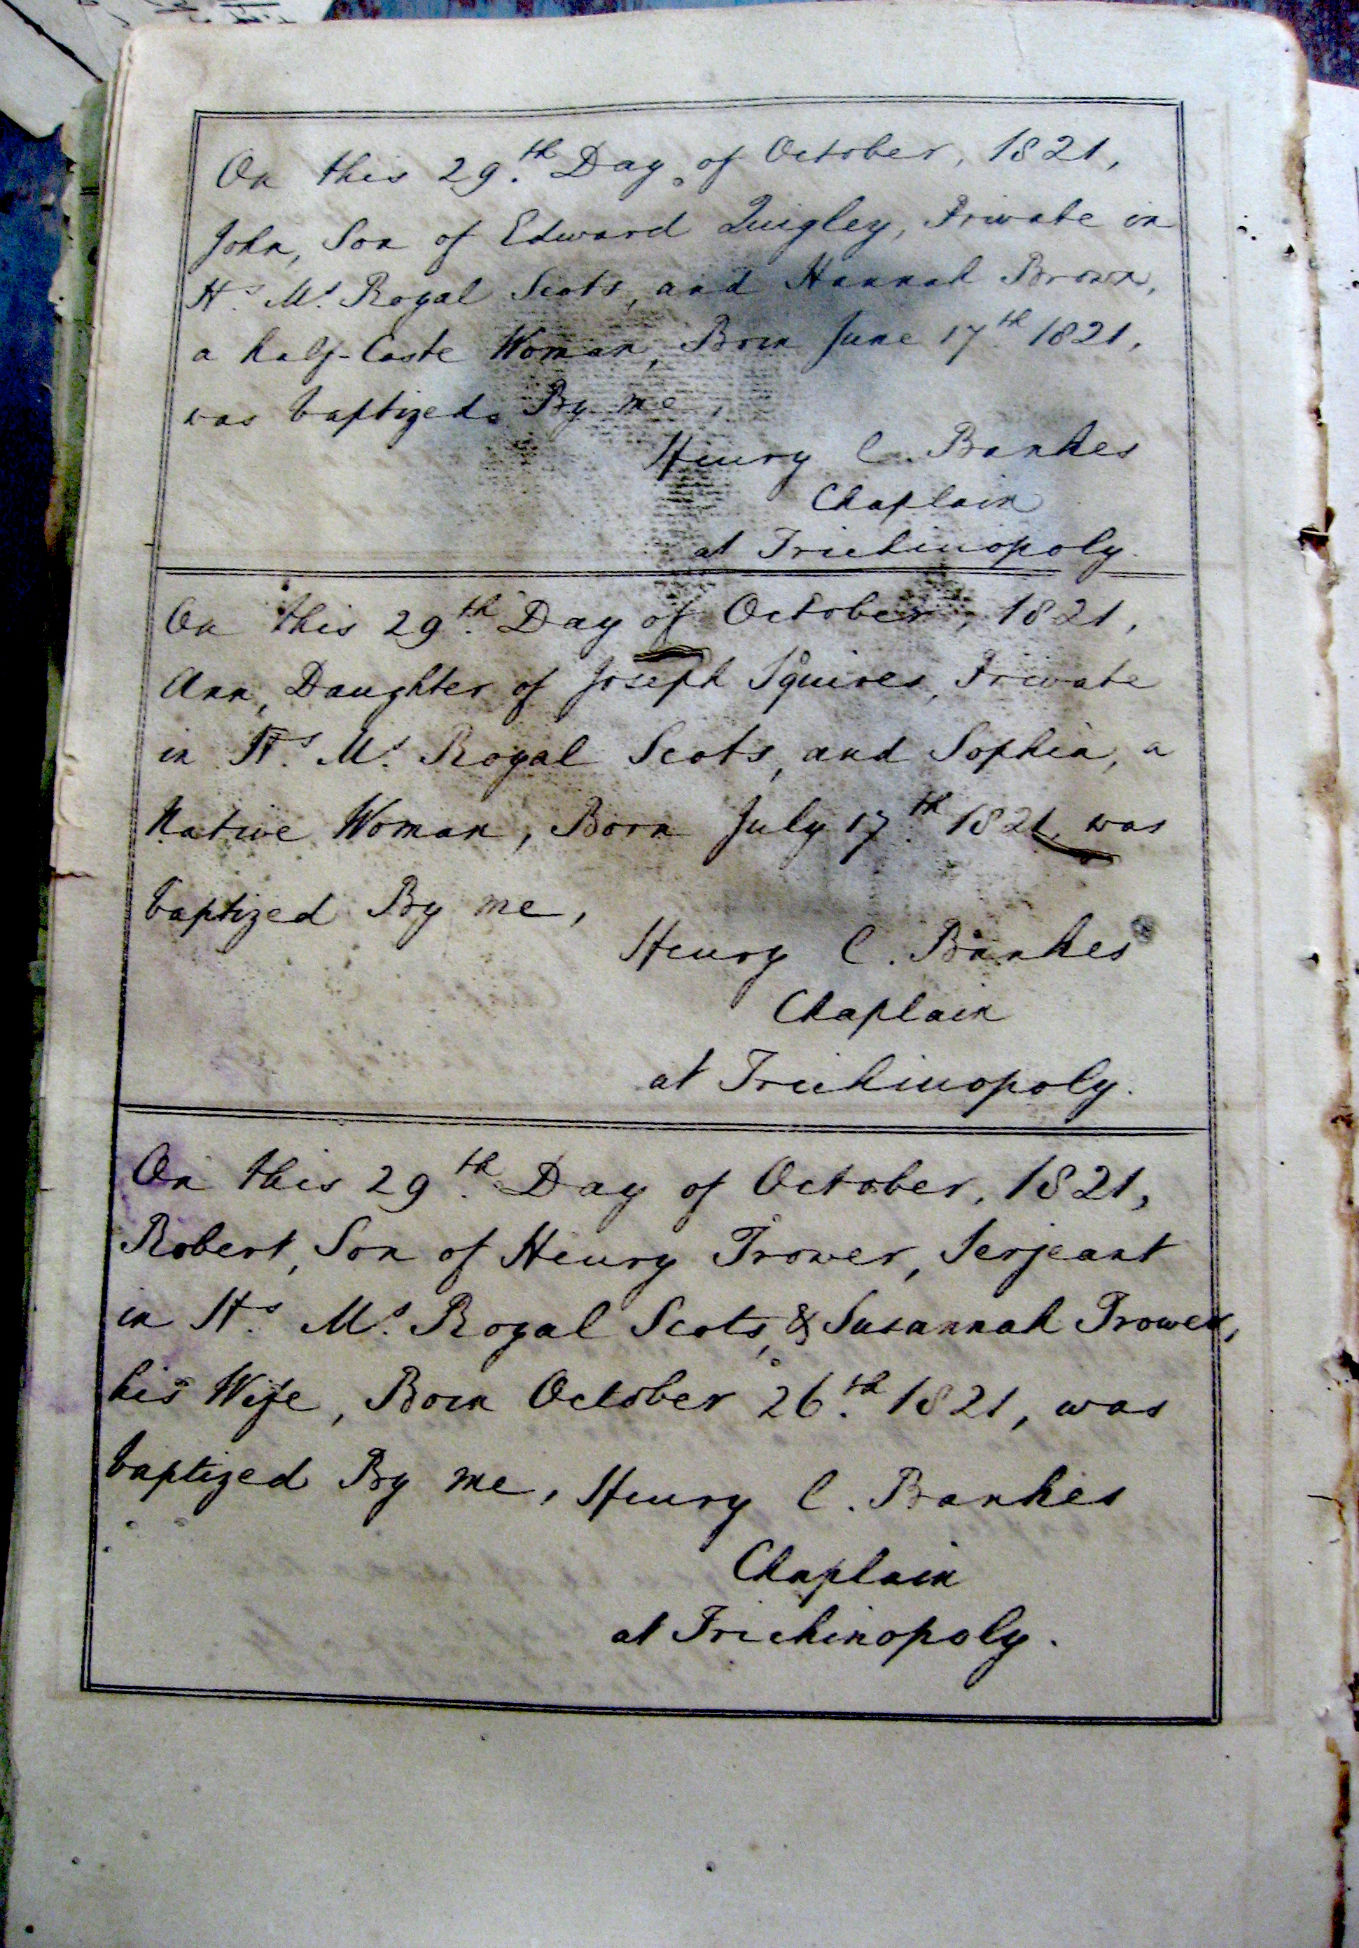 On this 29.th Day of October, 1821,
John, Son of Edward Quigley, Private in
H.s M.s Royal Scots, and Hannah Brown,
a half-Caste Woman, Born June 17.th 1821,
was baptized By me,
Henry C. Bankes
Chaplain
at Trichinopoly.
On this 29.th Day of October, 1821,
Ann, Daughter of Joseph Squires, Private
in H.s M.s Royal Scots, and Sophia, a
Native Woman, Born July 17.th 1821, was
baptized By me,
Henry C. Bankes
Chaplain
at Trichinopoly.
On this 29.th Day of October, 1821,
Robert, Son of Henry Trower, Serjeant
in H.s M.s Royal Scots, & Susannah Trower,
his Wife, Born October 26.th 1821, was
baptized By me, Henry C. Bankes
Chaplain
at Trichinopoly.